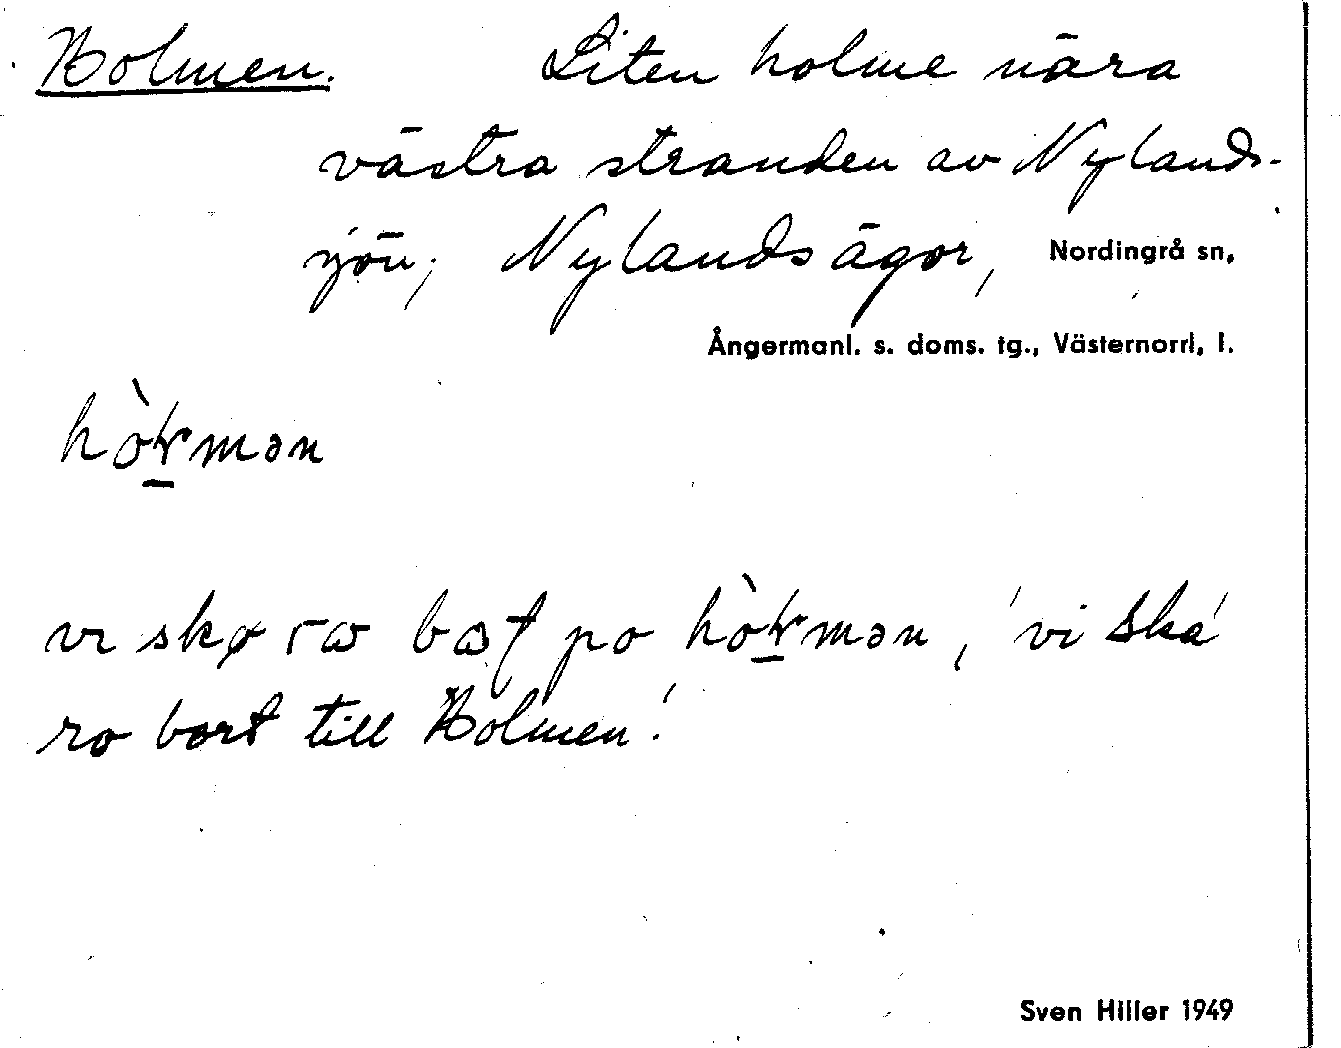 Holmen. Liten holme nära
västra stranden av Nylands-
sjön; Nylands ägor, Nordingrå sn,
Ångermanl. s. doms. tg., Västernorrl. l.
vi ska
ro bort till Holmen!
Sven Hiller 1949